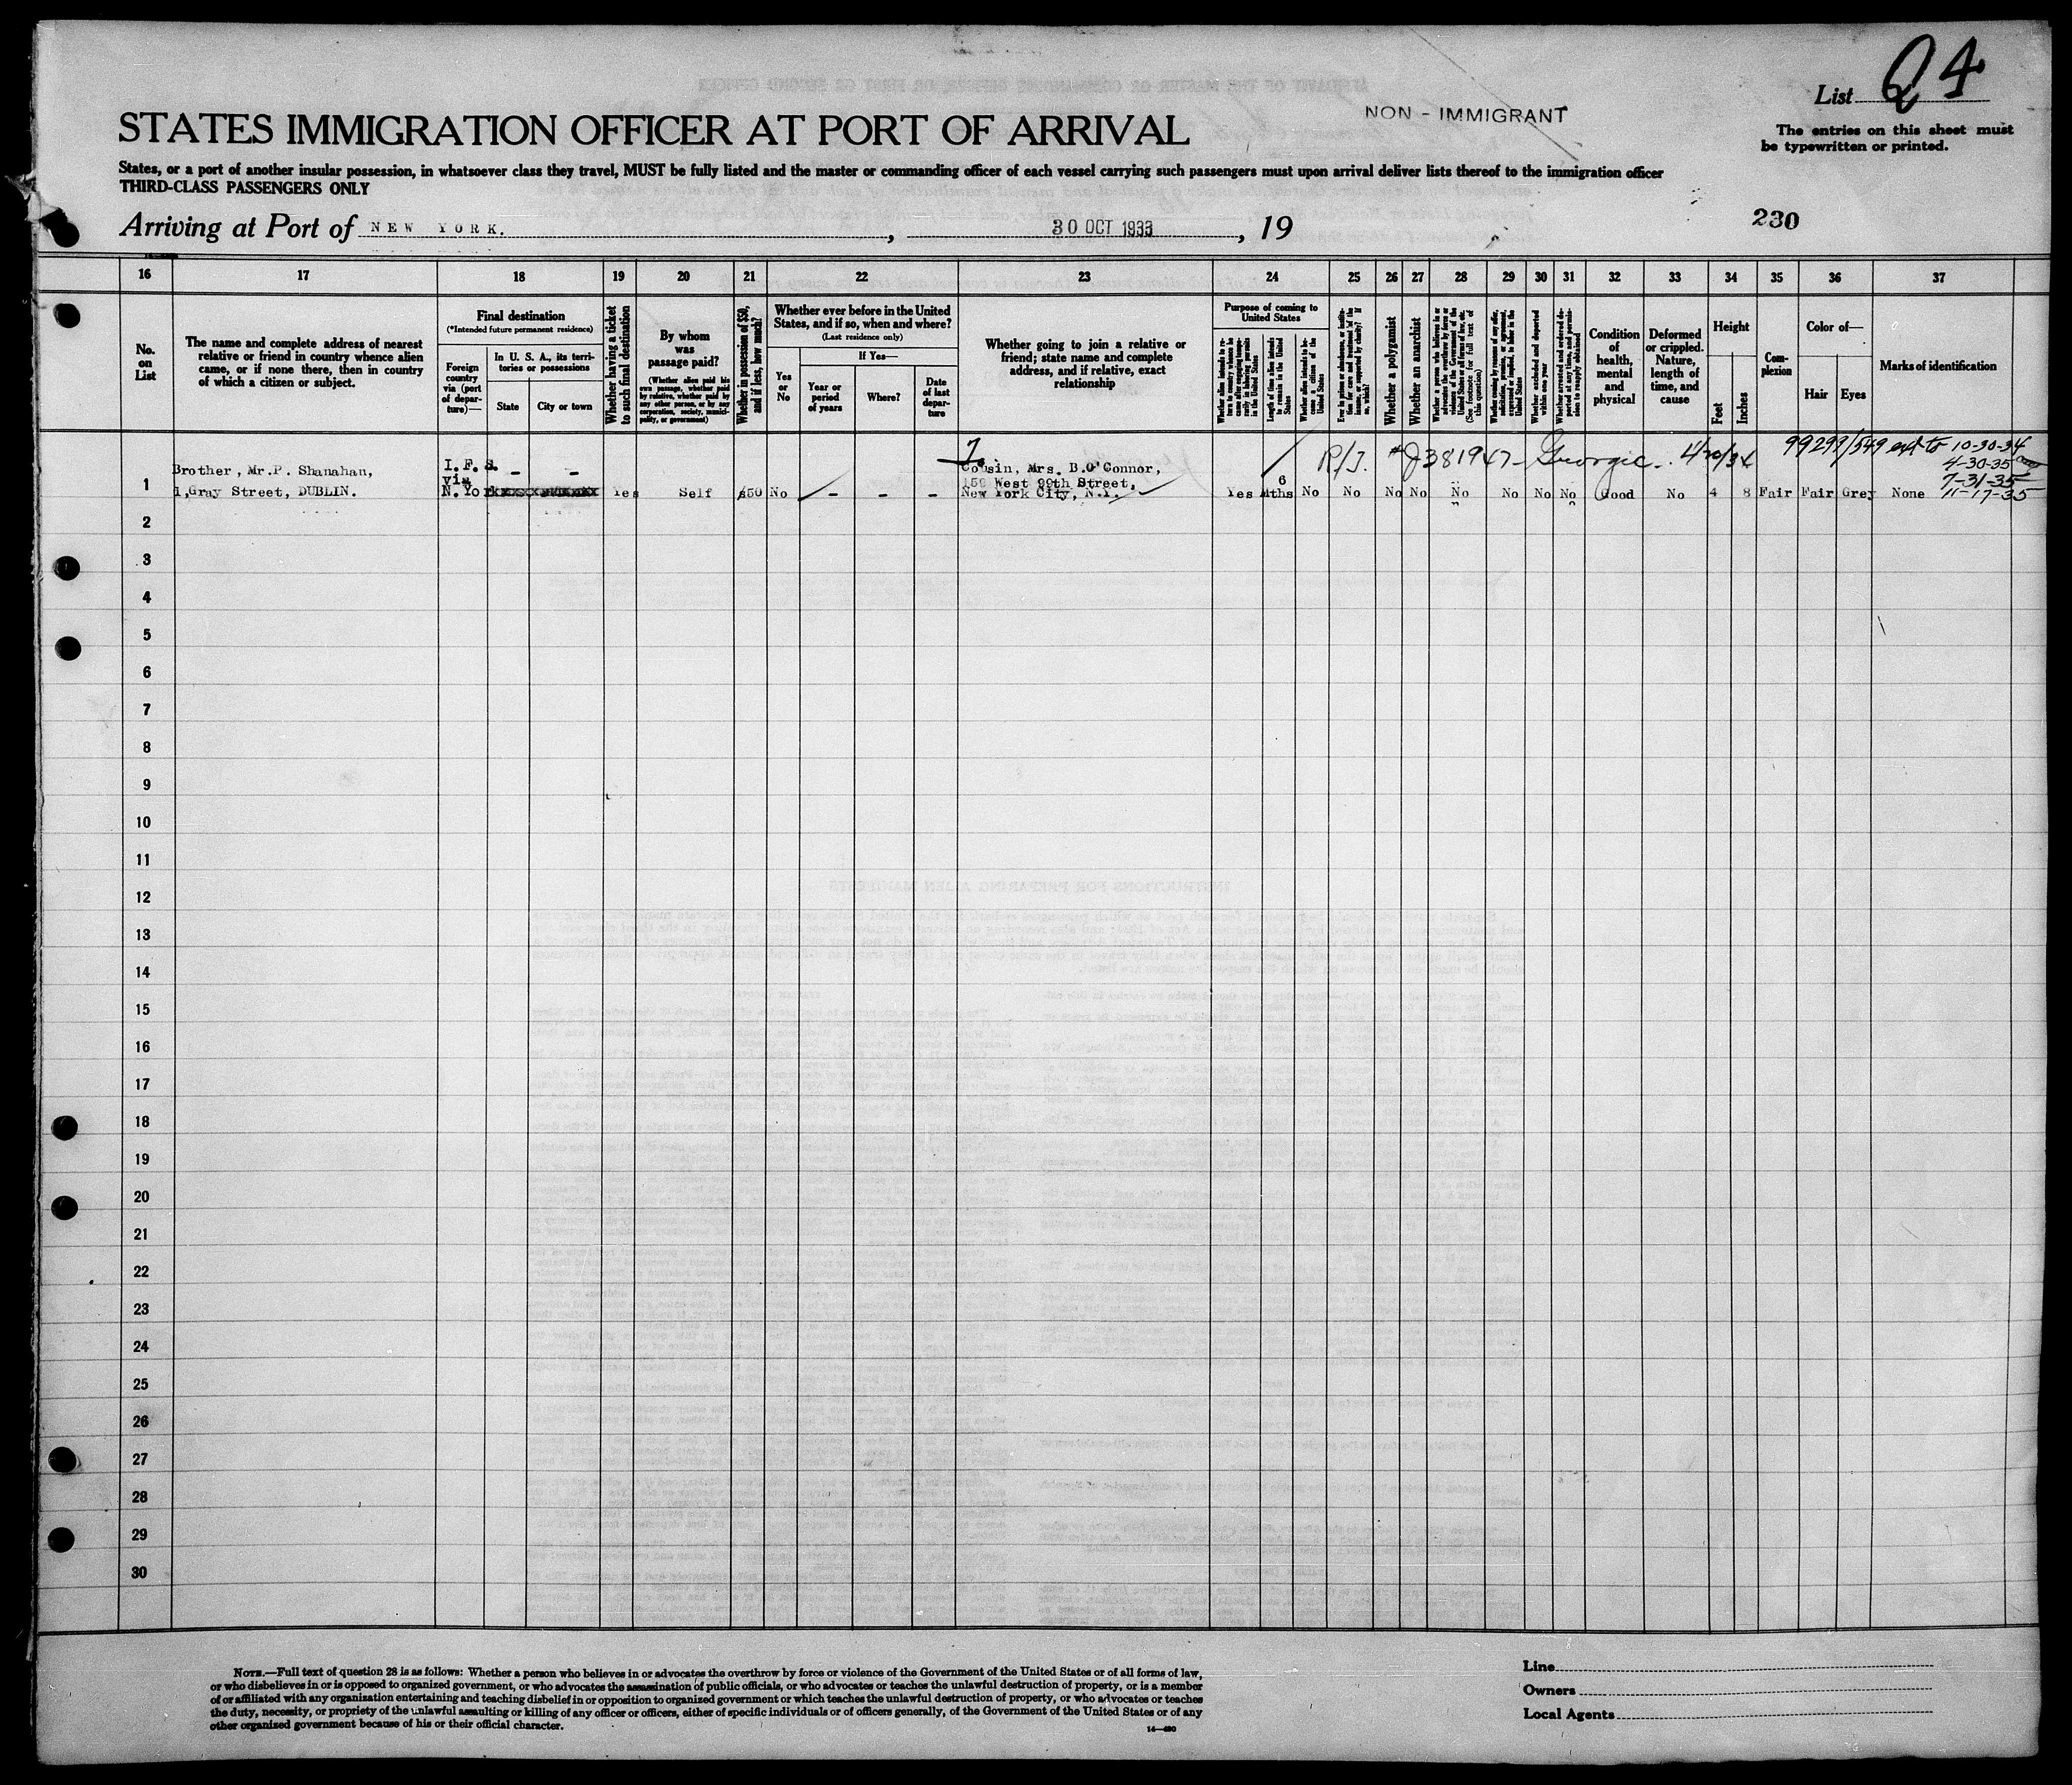 List 24
NON - IMMIGRANT
STATES IMMIGRATION OFFICER AT PORT OF ARRIVAL
The entries on this sheet must
be typewritten or printed.
States, or a port of another insular possession, in whatsoever class they travel, MUST be fully listed and the master or commanding officer of each vessel carrying such passengers must upon arrival deliver lists thereof to the immigration officer
THIRD-CLASS PASSENGERS ONLY
Arriving at Port of NEW YORK. , 30 OCT 1933 , 19
230
16 17 18 19 20 21 22 23 24 25 26 27 28 29 30 31 32 33 34 35 36 37
No.
on
List
The name and complete address of nearest
relative or friend in country whence alien
came, or if none there, then in country
of which a citizen or subject.
Final destination
(*Intended future permanent residence)
Foreign
country
via (port
of depar-
ture)—
In U. S. A., its terri-
tories or possessions
State
City or town
Whether having a ticket
to such final destination
By whom
was
passage paid?
(Whether alien paid his
own passage, whether paid
by relative, whether paid by
any other person, or by any
corporation, society, munici-
pality, or government)
Whether in possession of $50,
and if less, how much?
Whether ever before in the United
States, and if so, when and where?
(Last residence only)
Yes
or
No
If Yes—
Year or
period
of years
Where?
Date
of last
depar-
ture
Whether going to join a relative or
friend; state name and complete
address, and if relative, exact
relationship
Purpose of coming to
United States
Length of time alien intends
to remain in the United
States
Whether alien intends to be-
come a citizen of the
United States
Whether a polygamist
Whether an anarchist
Whether excluded and deported
within one year
Condition
of
health,
mental
and
physical
Deformed
or crippled.
Nature,
length of
time, and
cause
Height
Feet
Inches
Com-
plexion
Color of—
Hair
Eyes
Marks of identification
R/J. #J381947- Georgic 4/20/34 99299/549 ext to 10-30-34
4-30-35
7-31-35
11-17-35
Brother, Mr.P. Shanahan,
1,Gray Street, DUBLIN.
I.F.S. - -
via
N.Yo
Yes Self $50 No - - -
Cousin, Mrs. B.O'Connor,
West 99th Street,
New York City, N.Y.
Yes 6 Mths No No No No No No No No Good No 4 8 Fair Fair Grey None
1
2
3
4
5
6
7
8
9
10
11
12
13
14
15
16
17
18
19
20
21
22
23
24
25
26
27
28
29
30
NOTE.—Full text of question 28 is as follows: Whether a person who believes in or advocates the overthrow by force or violence of the Government of the United States or of all forms of law,
or who disbelieves in or is opposed to organized government, or who advocates the assassination of public officials, or who advocates or teaches the unlawful destruction of property, or is a member
of or affiliated with any organization entertaining and teaching disbelief in or opposition to organized government or which teaches the unlawful destruction of property, or who advocates or teaches
the duty, necessity, or propriety of the unlawful assaulting or killing of any officer or officers, either of specific individuals or of officers generally, of the Government of the United States or of any
other organized government because of his or their official character.
14—430
Line
Owners
Local Agents